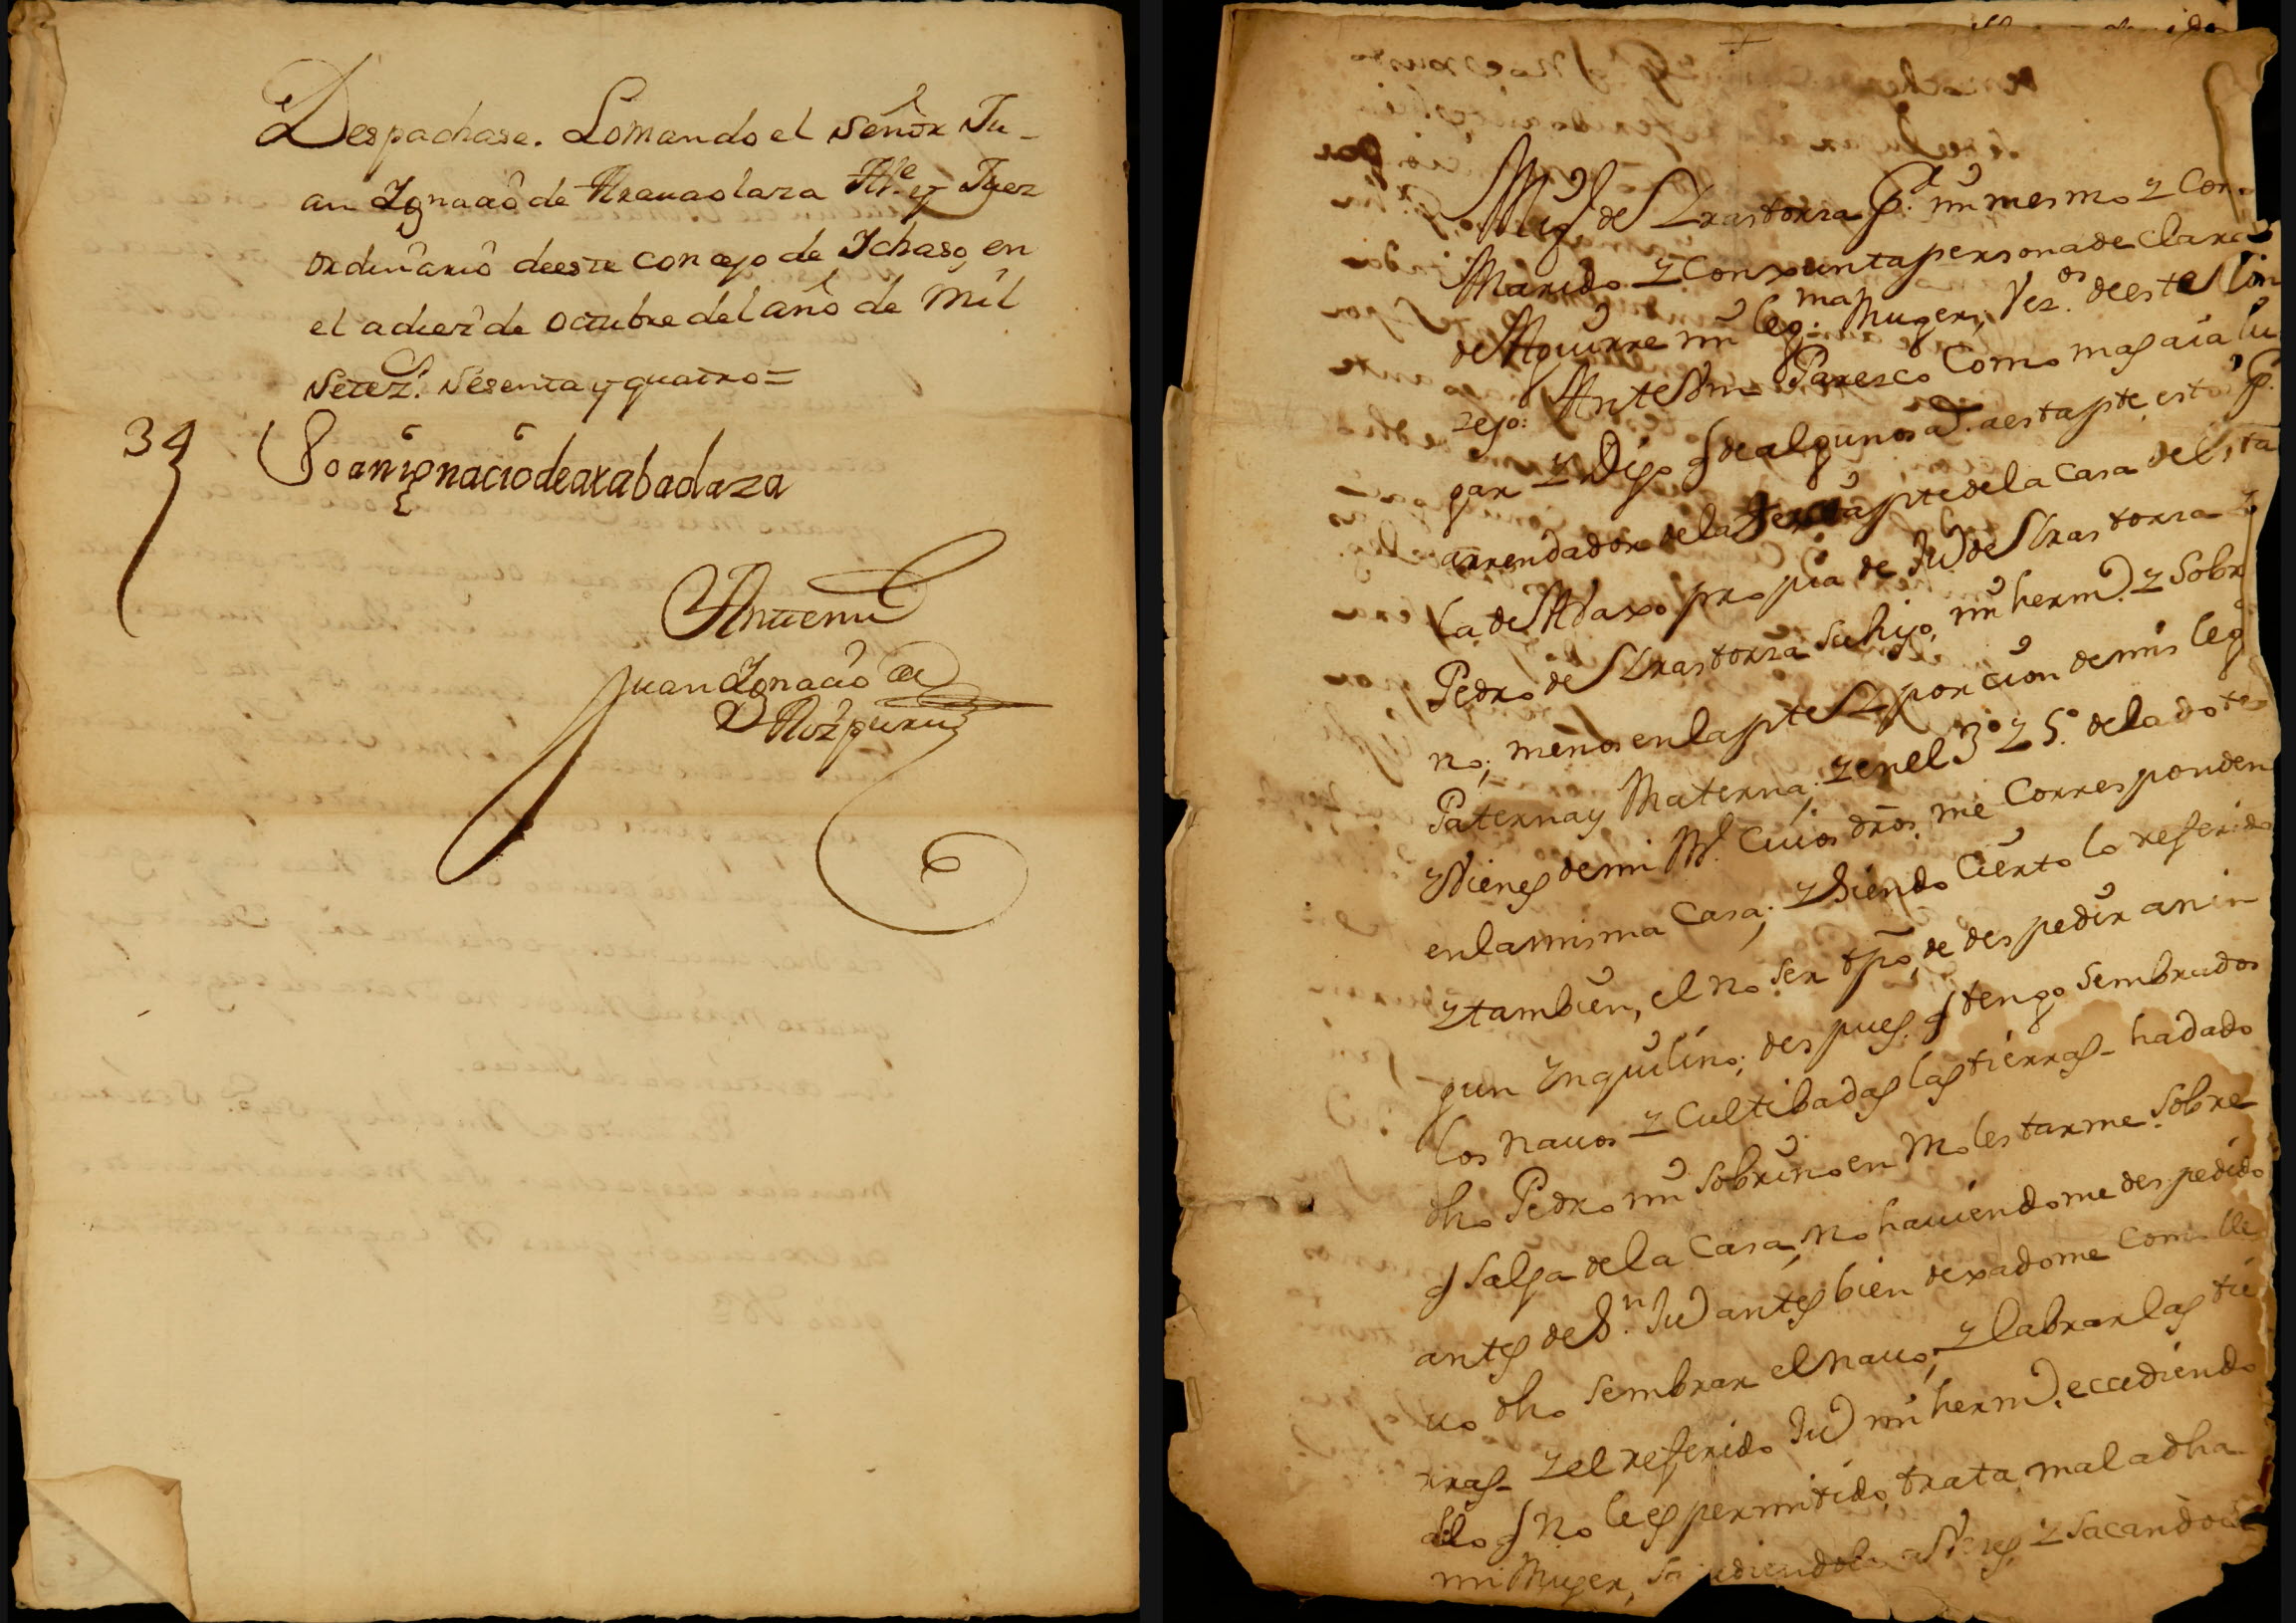 Despachase. Lo mando el señor Ju-
an Ignacio de Aravaolaza Alc.e y Juez
ordinario de este concejo de Ichaso, en
el a diez de octubre del año de mil
Setez.s sesenta y quatro=
34
Joan ignacio de arabaolaza
Antemi
Juan Ignacio de
Aozpuru
Mig.l de Urastorza P.r mi mesmo y Con-
Marido y Conxunta persona de Clara
de Aguirre mi leg.ma Muger, Vez.os de este Con
zejo: Ante Vm Paresco Como mas aia lu
gar y Digo q de algunos a.s a esta pte, estoi P.r
arrendador de la pte de la Casa de Ista
la de Abaxo propia de Ju de Urastorza y
Pedro de Urastorza su hijo, mi herm.o y Sobri
no; menos en la pte y porcion de mis leg
Paterna y Materna; y en el 3.º y 5.º de la dote
y Vienes de mi M.e Cuios dros, me Corresponden
en la misma Casa; y Siendo Cierto lo referido
y tambien, el no ser tpo, de despedir a nin
gun Ynquilino; despues q tengo Sembrados
los navos y Cultibadas las tierras- ha dado
dho Pedro mi Sobrino en Molestarme Sobre
q Salga de la Casa, no haviendome despedido
antes de S.n Ju antes bien dexadome Como lle
vo dho Sembrar el navo; y labrar las tie
rras- y el referido Ju mi herm.o eccediendo
a lo q no le es permitido, trata mal a dha
mi Muger, y Sacando